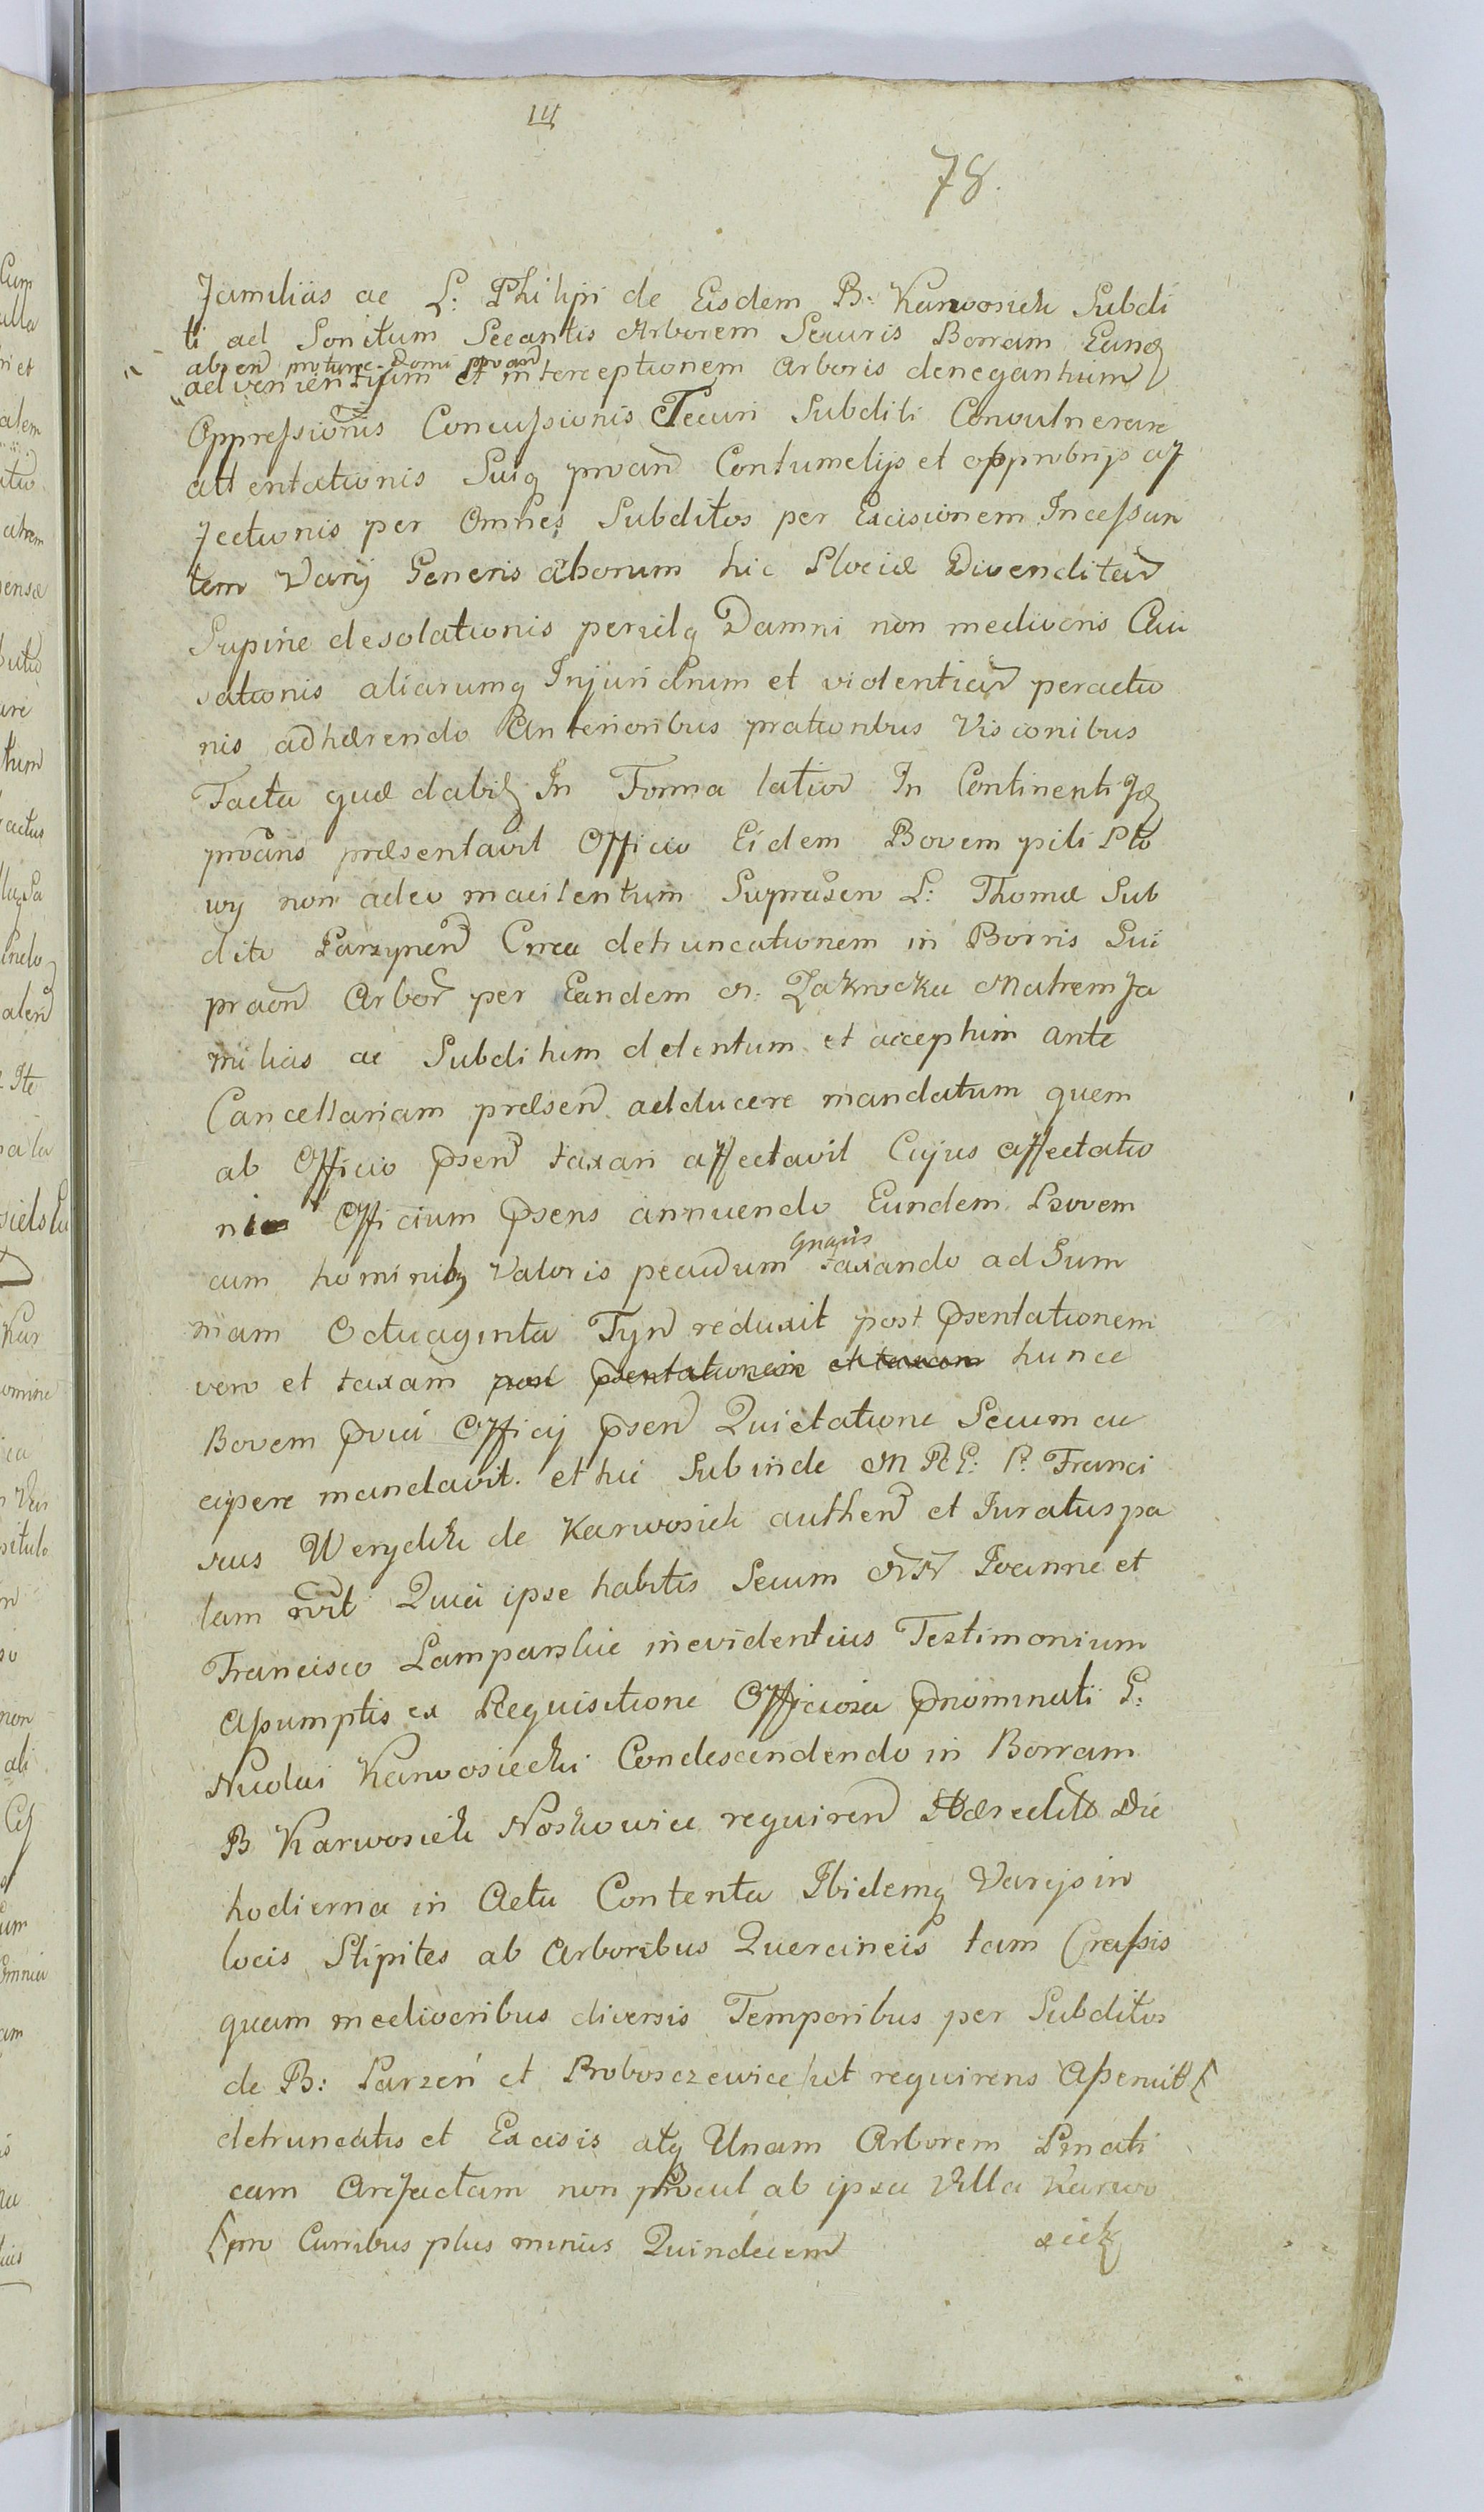 14
78.
familias ac L: Philipi de Eisdem B: Karwosieki Subdi
ti ad Sonitum Secantis Arborem Securis Borram Eandʒ
absen mature Domi proan
advenientium et interceptionem Arboris denegantium
Oppressionis Concussionis Securi Subditi Convulnerare
attentationis Suiq proan Contumelijs et opprobrijs af
fectionis per Omnes Subditos per Excisionem Incessan
tem Varij Generis arborum hic Plociæ Divenditar
Supine desolationis perilq Damni non mediocris Cau
sationis aliarumq Injuriarum et violentiar peractio
nis adhærendo Anterioribus prationibus Visionibus
Facta quæ dabiʒ In Forma latior In Continenti Jdʒ
proans præsentavit Officio Eidem Bovem pili Plo
wy non adeo macilentum Suprasen L: Thomæ Sub
dito Parzynen Circa detruncationem in Borris Sui
praon Arbor per Eandem N: Zakrocka Matrem fa
milias ac Subditum detentum et acceptum ante
Cancellariam præsen adducere mandatum quem
ab Officio psen taxari affectavit Cujus affectatio
ni Officium psens annuendo Eundem Bovem
cum hominibʒ Valoris pecudum gnaris taxando ad Sum
mam Octuaginta Tyn reduxit post psentationem
vero et taxam post psentationem et taxam hunce
Bovem pvia Officij psen Quietatione Secum ac
cipere mandavit. et hic Subinde M R G: P: Franci
scus Werydek de Karwosieki authen et Juratus pa
lam rvit Quia ipse habitis Secum NN Joanne et
Francisco Lamparskie inevidentius Testimonium
Assumptis ex Requisitione Officiosa pnominati G:
Nicolai Karwosiecki Condescendendo in Borram
B Karwosieki Noskowice requiren Hæredito Die
hodierna in Actu Contenta Ibidemq Varijs in
locis Stipites ab Arboribus Quercineis tam Crassis
quam mediocribus diversis Temporibus per Subditos
de B: Parzeń et Proboszczewice /ut requirens Asseruit/
detruncatis et Excisis atq Unam Arborem Pinati
cam Arefactam non procul ab ipsa Villa Karwo
[pro Curribus plus minus Quindecem
siek